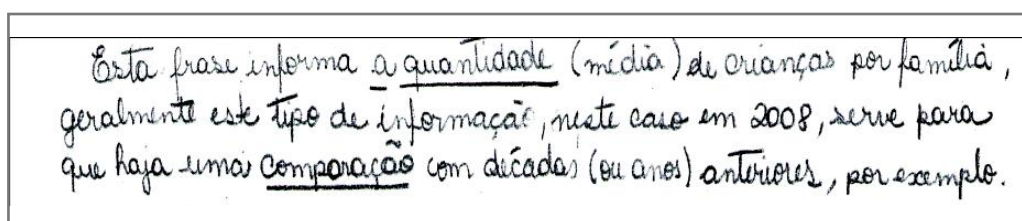 Esta frase informa a quantidade (média) de crianças por família,
geralmente este tipo de informação, neste caso em 2008, serve para
que haja uma comparação com décadas (ou anos) anteriores, por exemplo.